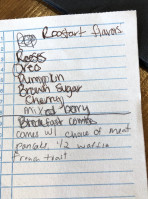 Pop Roostart flavors
Reeses
Oreo
Pumpkin
Brown Sugar
Cherry
mixed berry
Breakfast combos
comes w/ choice of meat
pancake 1/2 waffle
French toast